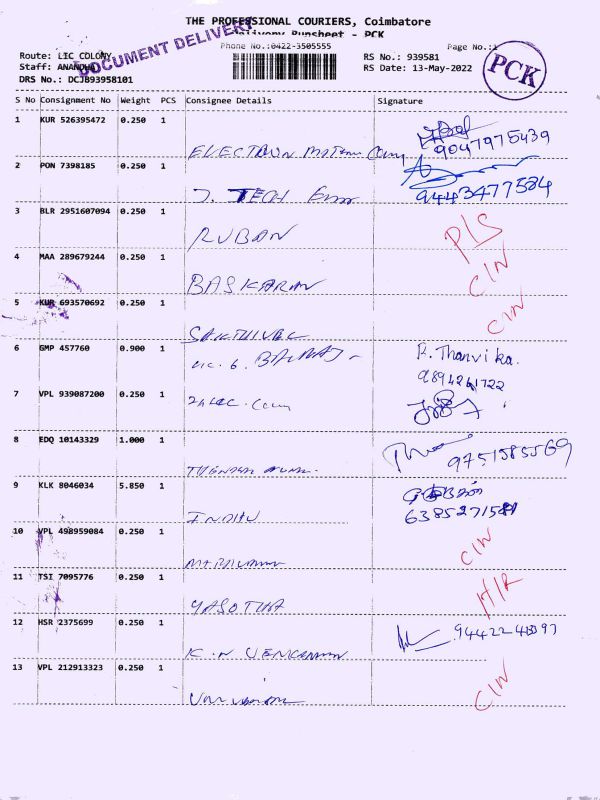 THE PROFESSIONAL COURIERS, Coimbatore
Delivery Runsheet - PCK
DOCUMENT DELIVERY
Phone No.:0422-3505555
Page No.:1
Route: LIC COLONY
RS No.: 939581
Staff: ANANDHA
RS Date: 13-May-2022
DRS No.: DCJB93958101
PCK
S No Consignment No Weight PCS Consignee Details Signature
1 KUR 526395472 0.250 1
ELECTRON
9047975439
2 PON 7398185 0.250 1
J. TECH
9443477584
3 BLR 2951607094 0.250 1
RUBAN
P/S
4 MAA 289679244 0.250 1
BASKARAN
C/N
5 KUR 693570692 0.250 1
SAKTHIVEL
C/N
6 GMP 457760 0.900 1
R. Thanvika.
9894261722
7 VPL 939087200 0.250 1
8 EDQ 10143329 1.000 1
9751585569
9 KLK 8046034 5.850 1
INDHU
6385271581
10 VPL 498959084 0.250 1
C/N
11 TSI 7095776 0.250 1
YASOTHA
H/R
12 HSR 2375699 0.250 1
K. N
13 VPL 212913323 0.250 1
C/N